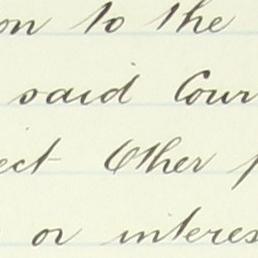 on to the
said Cour
ect Other p
or interes